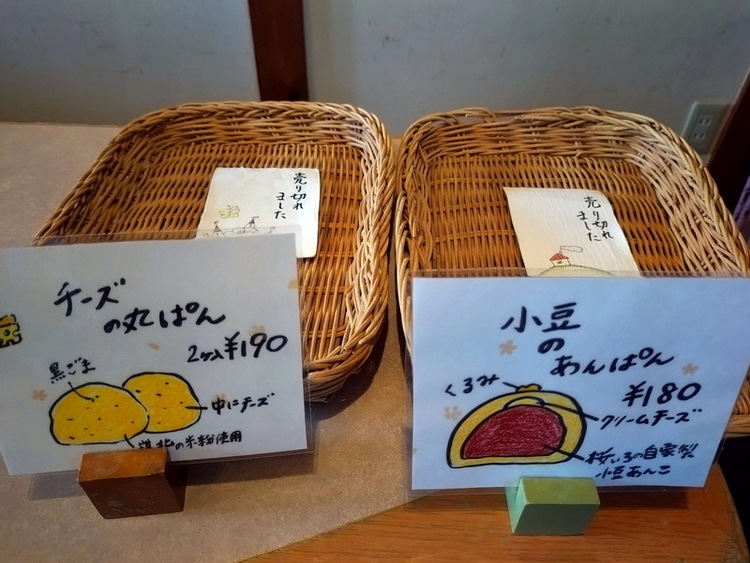 売り切れ
ました
チーズ
の丸ぱん
2つ入¥190
黒ごま
中にチーズ
の米粉使用
売り切れ
ました
小豆
の
あんぱん
¥180
くるみ
クリームチーズ
桜いろの自家製
小豆あんこ